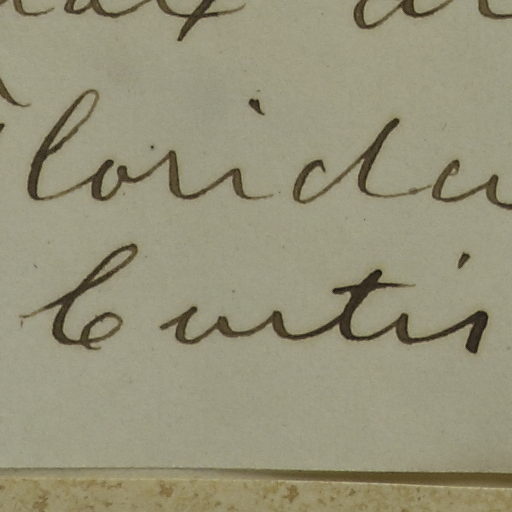 Florida
Curtis